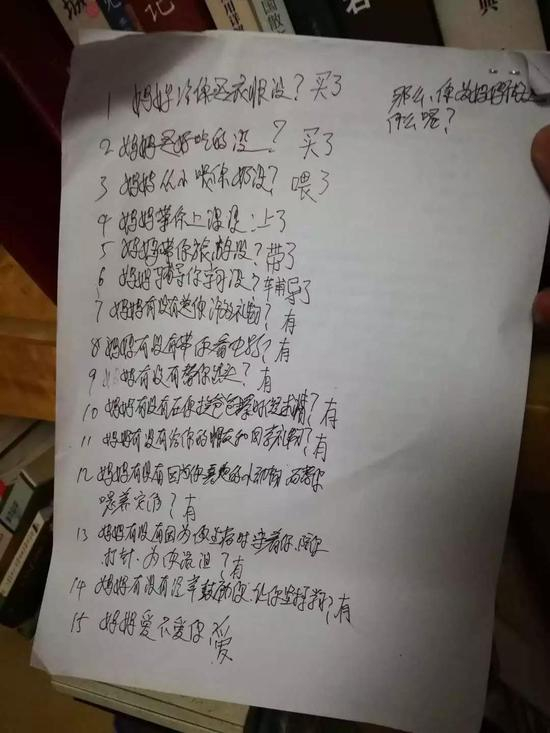 1 妈妈给你买衣服没？买了
2 妈妈买好吃的没？买了
3 妈妈从小喂你奶没？喂了
4 妈妈带你上课没．上了
5 妈妈带你旅游没？带了
6 妈妈辅导你学习没？辅导了
7 妈妈有没有送你 礼物？有
8 妈妈有没有带你看电影？有
9 妈妈有没有带你 ？有
10 妈妈有没有在你挨爸爸揍时 ？有
11 妈妈有没有给你的朋友和同学礼物？有
12 妈妈有没有因为你喜欢的小动物而帮你
喂养它们？有
13 妈妈有没有因为你生病时守着你．陪你
打针．为你 ？有
14 妈妈有没有经常鼓励你．让你坚持 ？有
15 妈妈爱不爱你 爱
那么、你为妈妈做过
什么呢？